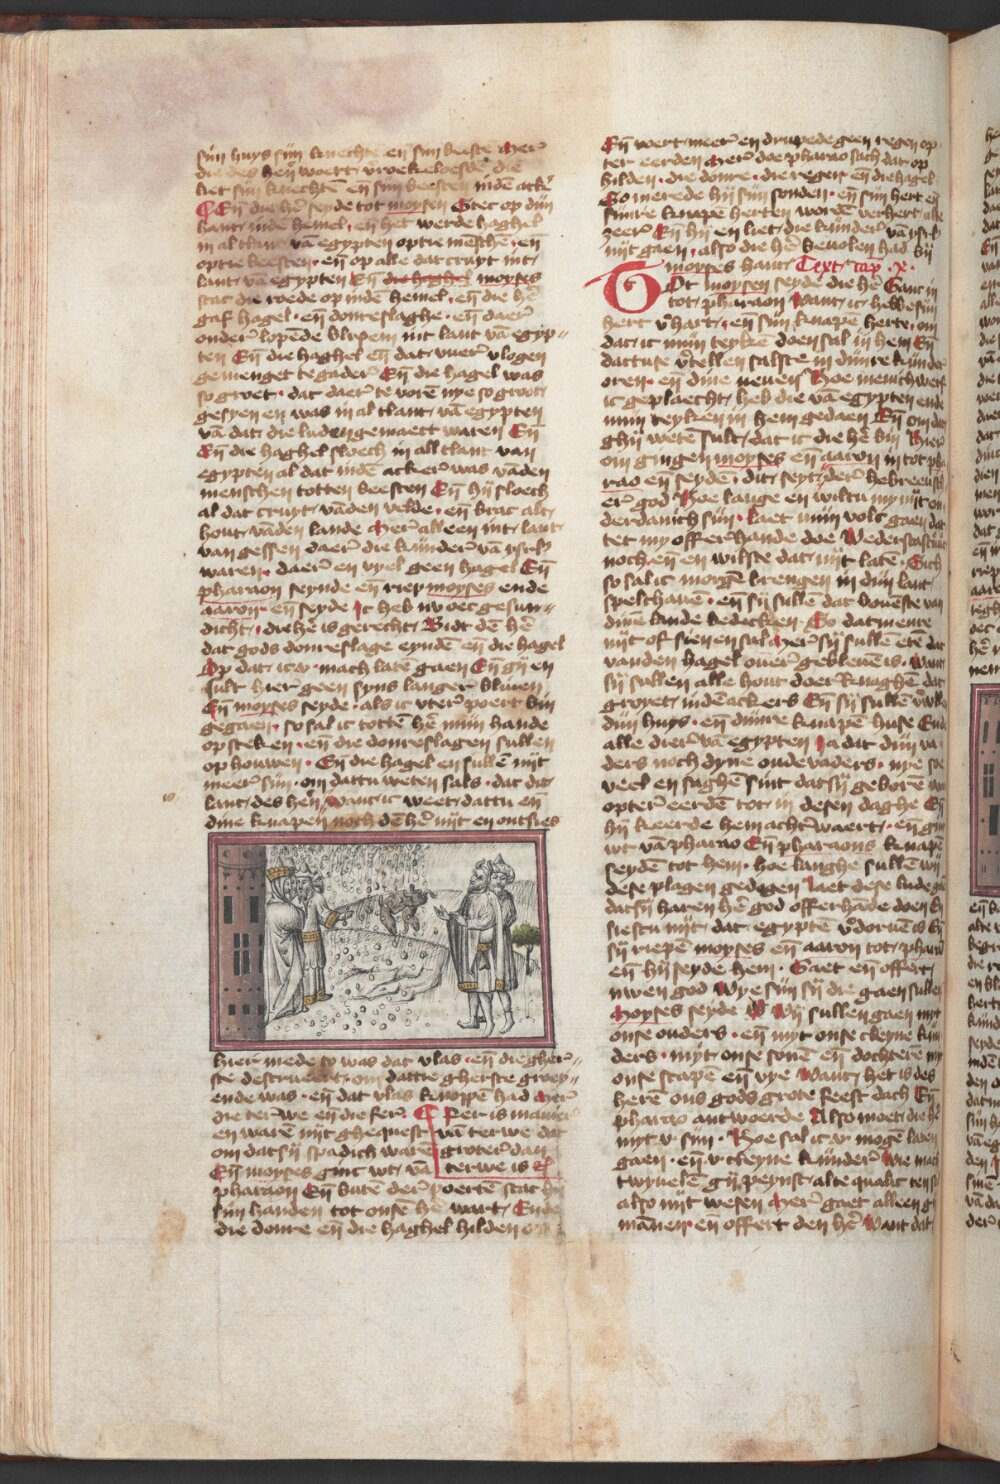 sijn huys sijn knechtē en sijn beestē Mer̄
die des herē woert v̄roekeloesde die
liet sijn knechtē en sijn beesten indē acker
Eñ die hē seyde tot moysen Stec op dijn
hant indē hemel eñ het werde haghel
in al tlant vā egypten op tie mēschē eñ
op tie beesten eñ op alle dat cruyt int
lant vā egypten Eñ die haghel moyses
stac die roede op indē hemel eñ die hē
gaf hagel eñ donreslaghe eñ daer
onder lopēde blixem int lant vā egyp
ten Eñ die haghel eñ dat vuer vlogen
gemenget te gader Eñ die hagel was
so groet dat daer te vorē nye so groot
gesyen en was in al tlant vā egypten
vā dat die luden gemaect waren Eñ
Eñ die haghel sloech in all tlant van
egypten al dat indē acker was vādē
menschen totten beesten Eñ hij sloech
al dat cruyt vāden velde eñ brac alt
hout vāden lande Mer alleen int lant
van gessen daer die kinder vā isrl
waren daer en vyel geen hagel Eñ
pharaon seynde eñ riep moyses ende
aaron eñ seyde Ic heb nv oec gesun
dicht die hē is gerecht Bidt dē hē
dat gods donreslage eyndē eñ die hagel
Op dat ic v mach latē gaen Eñ gij en
sult hier geen syns langer bliuen
Eñ moyses seyde als ic vter poert bin
gegaen so sal ic tottē hē mijn hande
op steken eñ die donreslagen sullen
op houwen Eñ die hagel en sullē nijt
meer sijn om dattu weten sals dat dat
lant des herē is Want ic weet dattu eñ
dine knapen noch dē hē nijt en ontsies
hier mede so was dat vlas eñ die gher
ste destrueert om dattie gherste groey
ende was eñ dat vlas knoppē had Mer
die terwe en die
en warē nijt ghequest
om datsij spadich warē
Eñ moyses ginc wt vā
Per is manier
vā terwe dat
groter dan
terwe is
pharaon Eñ butē der poertē stac hij
sijn handen tot onse hē wart Ende
die donre eñ die haghel hilden op
Eñ wert meer en drupede geen regen op
ter eerden Mer doe pharao sach dat op
hilden die donre die regen eñ die hagel
So merede hij sijn sonden eñ sijn hert eñ
sijnre knapē herten wordē verhert alte
zeer Eñ hij en liet die kinder vā isrl
nijt gaen also die hē beuolen had bij
moyses hant Text cap x
Tot moysen seyde die hē Ganc in
tot pharaon Want ic hebbe sijn
hert v̄hart eñ sijn knapē herte om
dat ic mijn teyken doen sal in hem Eñ
dattuse v̄tellen salste in dijnre kinder
oren en dine neuen Hoe menichwerf
ic geplaecht heb die vā egypten ende
mijn teyken in hem gedaen Eñ om dat
ghij wetē sult dat ic die hē bin Hier
om gingen moyses eñ aaron in tot pha
rao eñ seydē dit seyt der hebreeusch
er god Hoe lange en wiltu my nijt on
derdanich sijn Laet mijn volc gaen dat
tet my offerhande doe Wederstaestuu
noch eñ en wilste dat nijt latē Sich
so sal ic morgē brengen in dijn lant
spelthauē eñ sij sullē dat bouenste van
dine lande bedecken So datmenre
nijt of sien en sal Mer sij sullē etē dat
vanden hagel ouer gebleuē is Want
sij sullen alle hout doer knaghē dat
groyet indē ackers Eñ sij sullē v̄vullē
dijn huys eñ dijnre knapē huse Ende
alle dier vā egypten Ja dat dijn va
ders noch dyne oude vaders nye so
veel en saghē sint datsij geborē
opter eerdē tot in desen daghe Eñ
hij keerde hem achter waert eñ ginc
wt vā pharao Eñ pharaons knapē
seydē tot hem hoe langhe sullē wij
dese plagen gedogen Laet dese lude gaē
datsij haren hē god offerhāde doen En
siestu nijt dat egyptē v̄doruē is Eñ
sij riepē moyses eñ aaron tot pharao
eñ hij seyde hem Gaet eñ offert
uwen god Wye sijn sij die gaen sullen
Moyses seyde Wij sullen gaen myt
onse ouders eñ myt onse cleyne kin
ders myt onse sonē eñ dochterē myt
onse scapē eñ vye Want het is des
herē ons gods grote feest dach Eñ
pharao antwoerde Also moet die hē
myt v sijn Hoe sal ic v mogē laten
gaen eñ v cleyne kinder Wie mach
twyuelē gij peynst alte qualic ten sal
also nijt wesen Mer gaet alleen gi
mānen eñ offert den hē Want dat